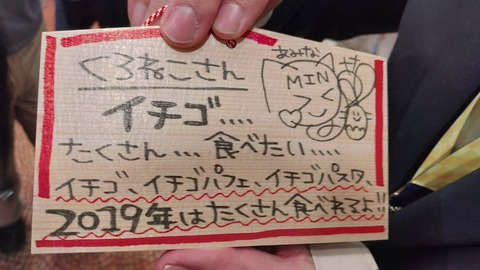 くろねこさん
あみな
MIN
イチゴ....
たくさん... 食べたい....
イチゴ、イチゴパフェ、イチゴパスタ、
2019年はたくさん食べれるよ!!